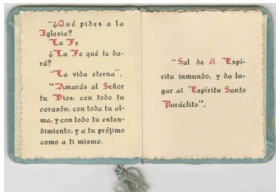 "¿Qué pides a la
Iglesia?
La Fe
¿La Fe qué te da-
rá?
"La vida eterna".
"Amarás al Señor
tu Dios, con todo tu
corazón, con toda tu al-
ma, y con todo tu enten-
dimiento, y a tu prójimo
como a ti mismo.
"Sal de él Espí-
ritu inmundo, y da lu-
gar al Espíritu Santo
Paráclito".